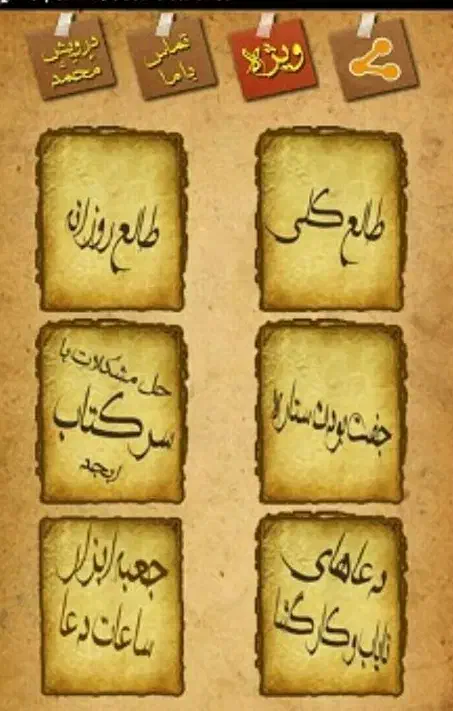 ویژه
تماس
باما
درویش
محمد
طالع کلی
طالع روزانه
جفت بودن ستاره
حل مشکلات با
سرکتاب
ابجد
دعاهای
نایاب و کارگشا
جعبه ابزار
ساعات دعا